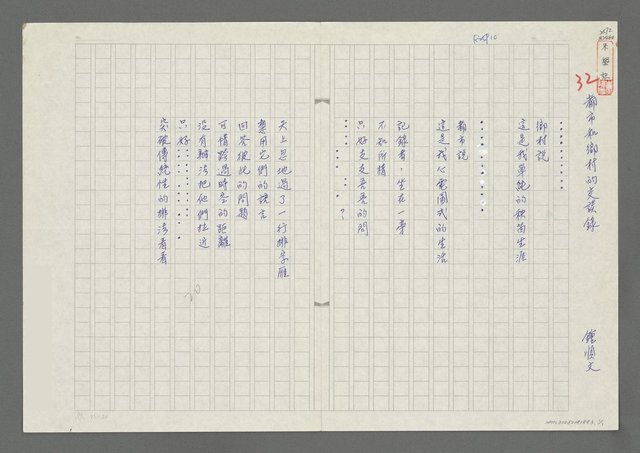 都市和鄉村的交談錄
鍾順文
‧‧‧‧‧‧‧‧
鄉村說
這是我單純的牧笛生涯
‧‧‧‧‧‧
都市說
這是我心電圖式的生活
記錄者,坐在一旁
不知所措
只好支支吾吾的問
‧‧‧‧‧‧?
天上忽地過了一行排字雁
想用它們的謊言
回答彼此的問題
可惜跨過時空的距離
沒有辦法把他們拉近
只好‧‧‧‧‧‧
突破傳統性的排法看看
32
20